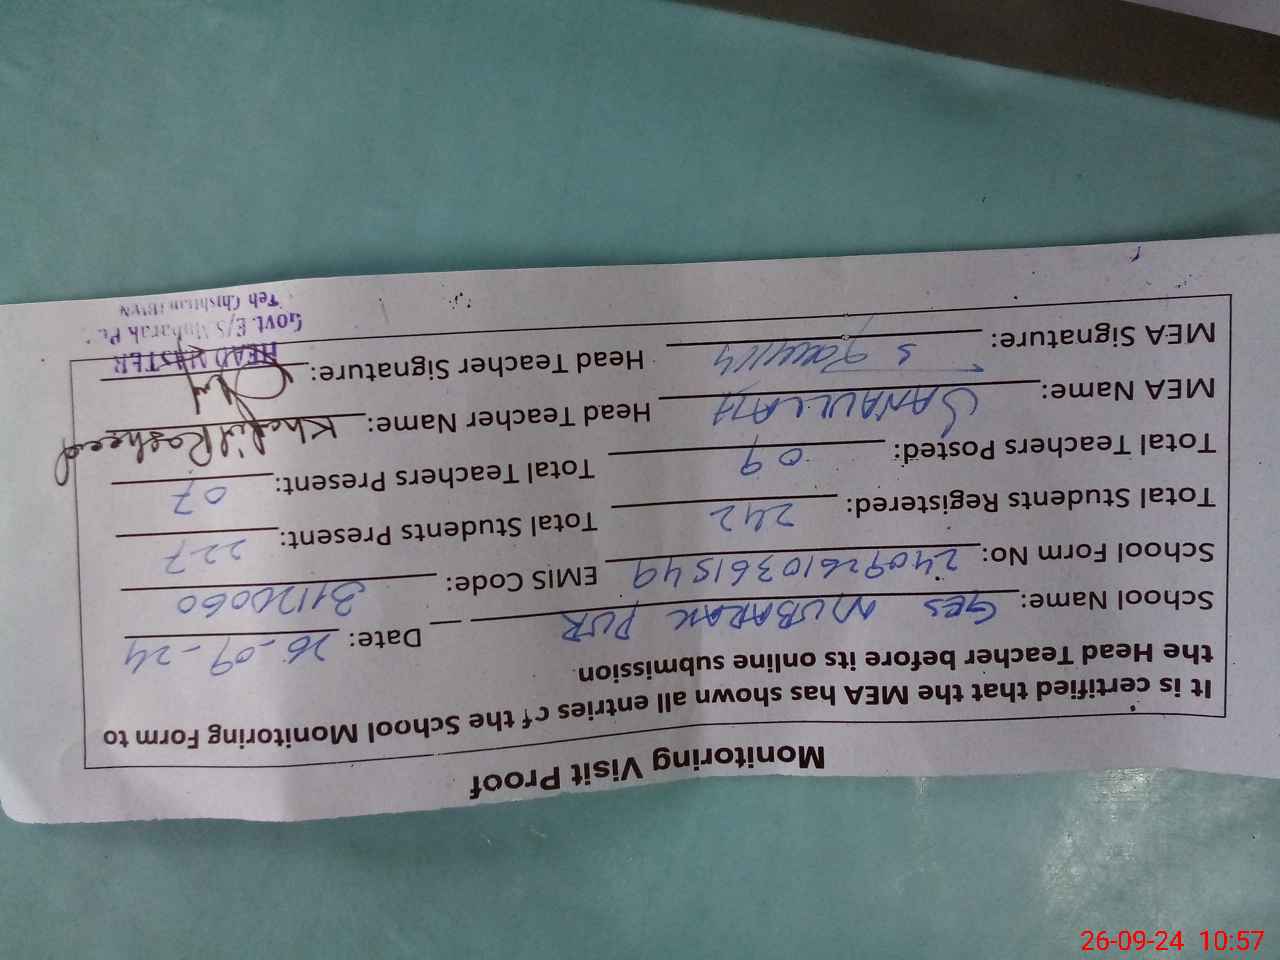 Monitoring Visit Proof
It is certified that the MEA has shown all entries of the School Monitoring Form to
the Head Teacher before its online submission.
School Name: GES MUBARAK PUR Date: 26-09-24
School Form No: 24092610361549 EMIS Code: 31120060
Total Students Registered: 242 Total Students Present: 227
Total Teachers Posted: 09 Total Teachers Present: 07
MEA Name: SANAULLAH Head Teacher Name: Khalil Rasheed
MEA Signature: Head Teacher Signature:
HEAD MASTER
Govt. E/S Mubarak Pur
Teh Chishtian
26-09-24 10:57